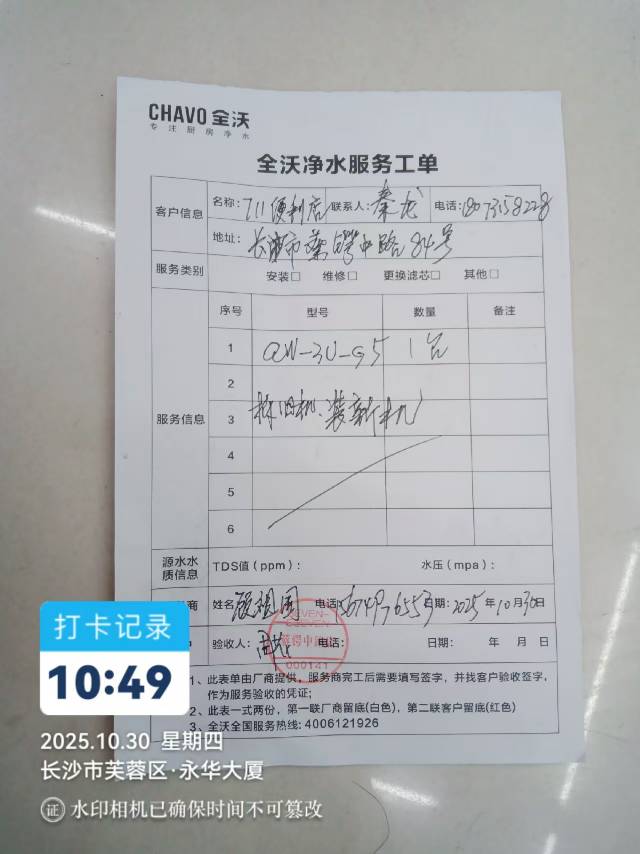 CHAVO 全沃
专注厨房净水
全沃净水服务工单
客户信息 名称: 711便利店 联系人: 秦龙 电话: 18073158228
地址: 长沙市蔡锷中路84号
服务类别 安装□ 维修□ 更换滤芯□ 其他□
服务信息 序号 型号 数量 备注
1 QW-3U-G5 1台
2
3 拆旧机、装新机
4
5
6
源水水质信息 TDS值 (ppm): 水压 (mpa):
商 姓名 顾祖国 电话 日期: 2025年10月30日
验收人: 电话: 日期: 年 月 日
SEVEN-ELEVEN
000141
1、此表单由厂商提供,服务商完工后需要填写签字,并找客户验收签字,
作为服务验收的凭证;
2、此表一式两份,第一联厂商留底(白色),第二联客户留底(红色)
3、全沃全国服务热线: 4006121926
打卡记录
10:49
2025.10.30 星期四
长沙市芙蓉区·永华大厦
证 水印相机已确保时间不可篡改